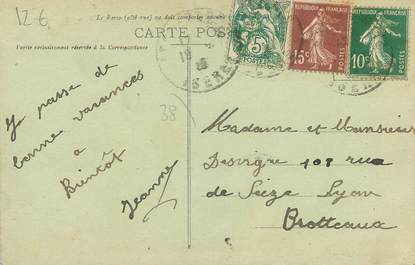 12 €
Le Verso (côté vue) ne doit comporter aucune
CARTE POS
Partie exclusivement réservée à la Correspondance
RÉPUBLIQUE FRANÇAISE
5c
RÉPUBLIQUE FRANÇAISE
15c
POSTES
RÉPUBLIQUE FRANÇAISE
10c
POSTES
ISERE
38
Je passe de
bonne vacances
a
Bientôt
Jeanne
Madame et Monsieur
108 rue
de Sèze Lyon
Brotteaux